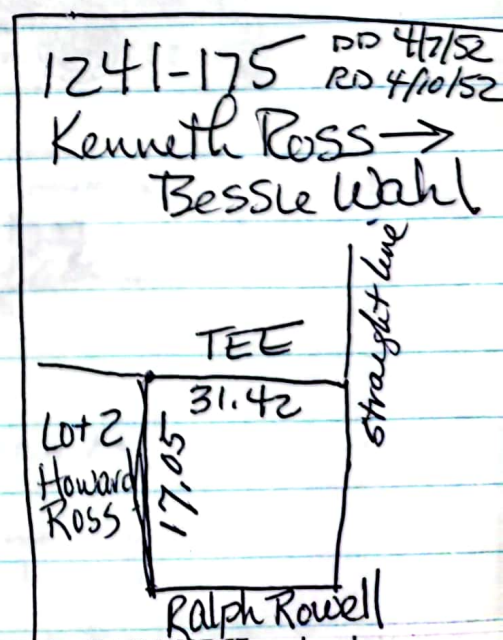 1241-175 DD 4/7/52
RD 4/10/52
Kenneth Ross →
Bessie Wahl
straight line
TEE
31.42
Lot 2
Howard
Ross
17.05
Ralph Rowell